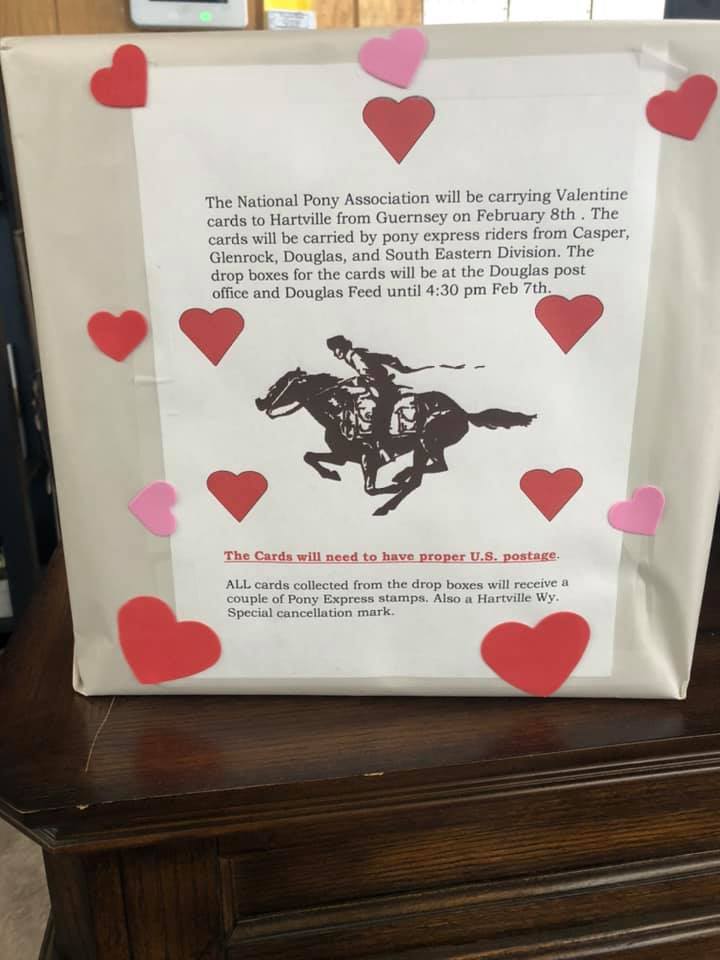 The National Pony Association will be carrying Valentine
cards to Hartville from Guernsey on February 8th . The
cards will be carried by pony express riders from Casper,
Glenrock, Douglas, and South Eastern Division. The
drop boxes for the cards will be at the Douglas post
office and Douglas Feed until 4:30 pm Feb 7th.
The Cards will need to have proper U.S. postage.
ALL cards collected from the drop boxes will receive a
couple of Pony Express stamps. Also a Hartville Wy.
Special cancellation mark.